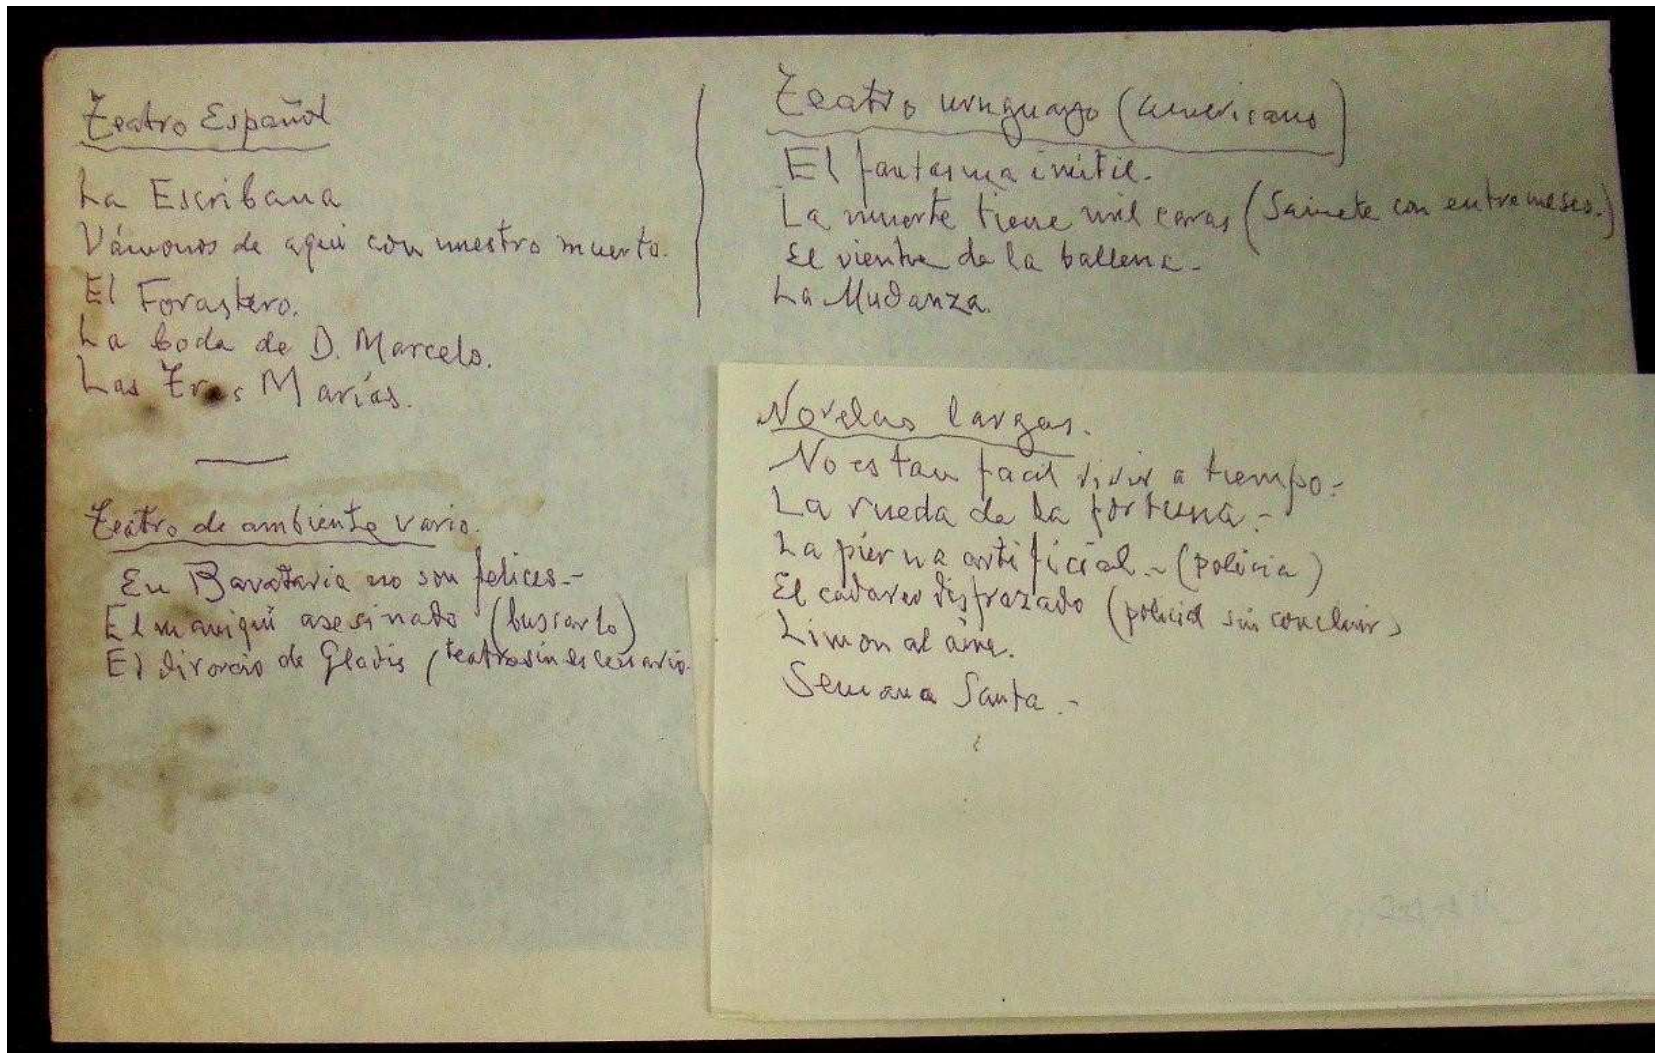 Teatro Español
La Escribana
Vámonos de aquí con nuestro muerto.
El Forastero.
La boda de D. Marcelo.
Las Tres Marías.
Teatro de ambiente vario.
En no son felices.-
El maniquí asesinado (buscarlo)
El divorcio de Gladis (teatro sin escenario.
Teatro uruguayo (americano)
El fantasma inútil.
La muerte tiene mil caras (Sainete con entremeses.)
El vientre de la ballena.-
La Mudanza.
Novelas largas.
No es tan facil vivir a tiempo.-
La rueda de la fortuna.-
La pierna artificial.- (policia)
El cadaver disfrazado (policial sin concluir)
Limon al aire.
Semana Santa.-